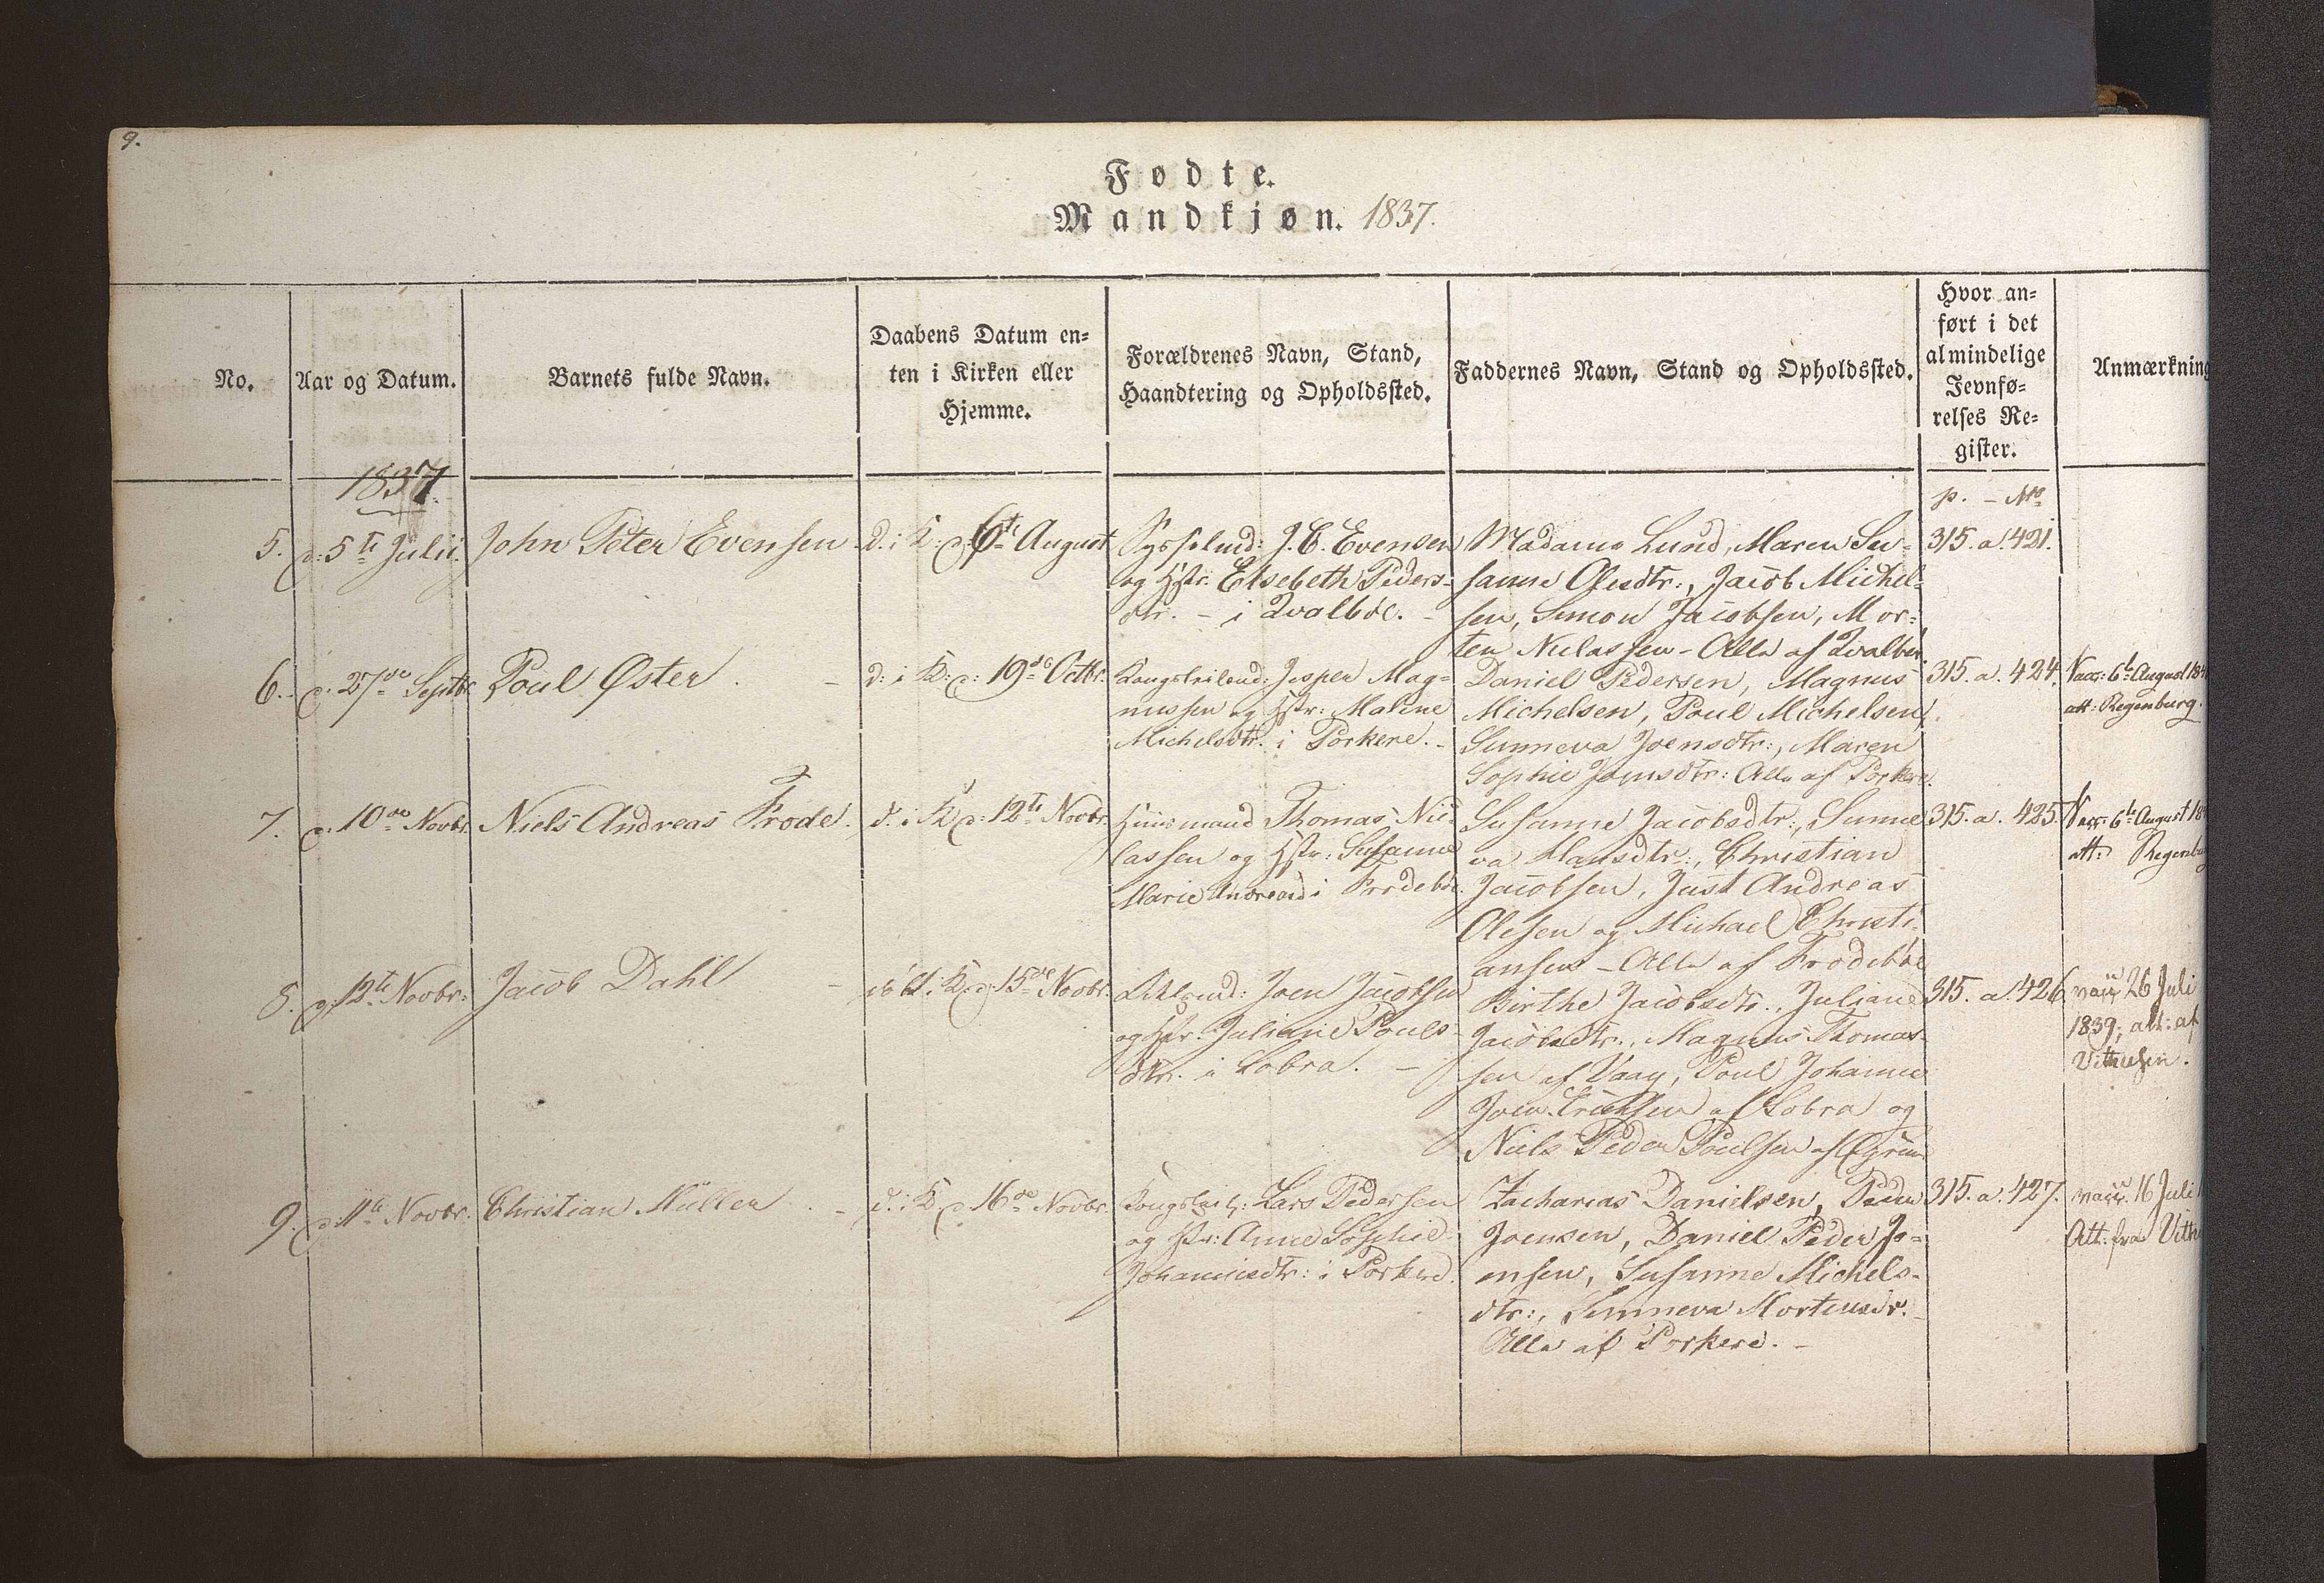 9.
Fødte.
Mandkjøn. 1837.
No.
Aar og Datum.
Barnets fulde Navn.
Daabens Datum en-
ten i Kirken eller
Hjemme.
Forældrenes Navn, Stand,
Haandtering og Opholdssted.
Faddernes Navn, Stand og Opholdssted.
Hvor an-
ført i det
almindelige
Jevnfø-
relses Re-
gister.
Anmærkning
1837.
p. - No
5. d: 5te Julii. John Peter Evensen
d. i K: d: 6te August
J. C. Evensen
og Hstr. Elsebeth Peders-
dtr. - i Qvalbøe. -
Madame Lund, Maren Su-
sanne Olesdtr., Jacob Michel-
sen, Simon Jacobsen, Mor-
ten Niclassen - Alle af Qvalbøe
315. a. 421.
6. d. 27de Septbr. Poul Øster. -
d: i K: d: 19de Octbr.
Jesper Mag-
nussen og Hstr: Malene
Michelsdtr. i Porkere. -
Daniel Pedersen, Magnus
Michelsen, Poul Michelsen,
Sunneva Joensdtr:, Maren
Sophie Joensdtr: Alle af Porkere.
315. a. 424.
Vacc: 6te August 184
att: Regenburg.
7. d. 10de Novbr. Niels Andreas Frode.
d. i K d: 12te Novbr.
Huusmand Thomas Nic-
lassen og Hstr: Susanne
Marie i Frodebøe.
Susanne Jacobsdtr:, Sunne
va Hansdtr:, Christian
Jacobsen, Just Andreas
Olesen og Michael Christi-
ansen - Alle af Frodebøe
315. a. 425.
Vacc: 6te August 18
att: Regenbu
8. d: 12te Novbr: Jacob Dahl -
døbt i K. d: 15de Novbr.
Joen Jacobsen
og Hstr. Juliane Pouls-
dtr. i Lobra. -
Birthe Jacobsdtr., Juliane
Jacobsdtr., Magnus Thomas-
sen af Vaag, Poul Johannes
Joen af Lobra og
Niels Peder Poulsen af
315. a. 426.
vacc 26 Juli
1839; att: af
9. d: 11te Novbr: Christian Müller. -
d. i K d. 16de Novbr.
Lars Pedersen
og Hstr: Anne Sophie
Johannesdtr: i Porkere.
Zacharias Danielsen, Peder
Joensen, Daniel Peder Jo-
ensen, Susanne Michels-
dtr:, Sunneva Mortensdr. -
Alle af Porkere. -
315. a. 427.
vacc. 16 Juli
Att: fra